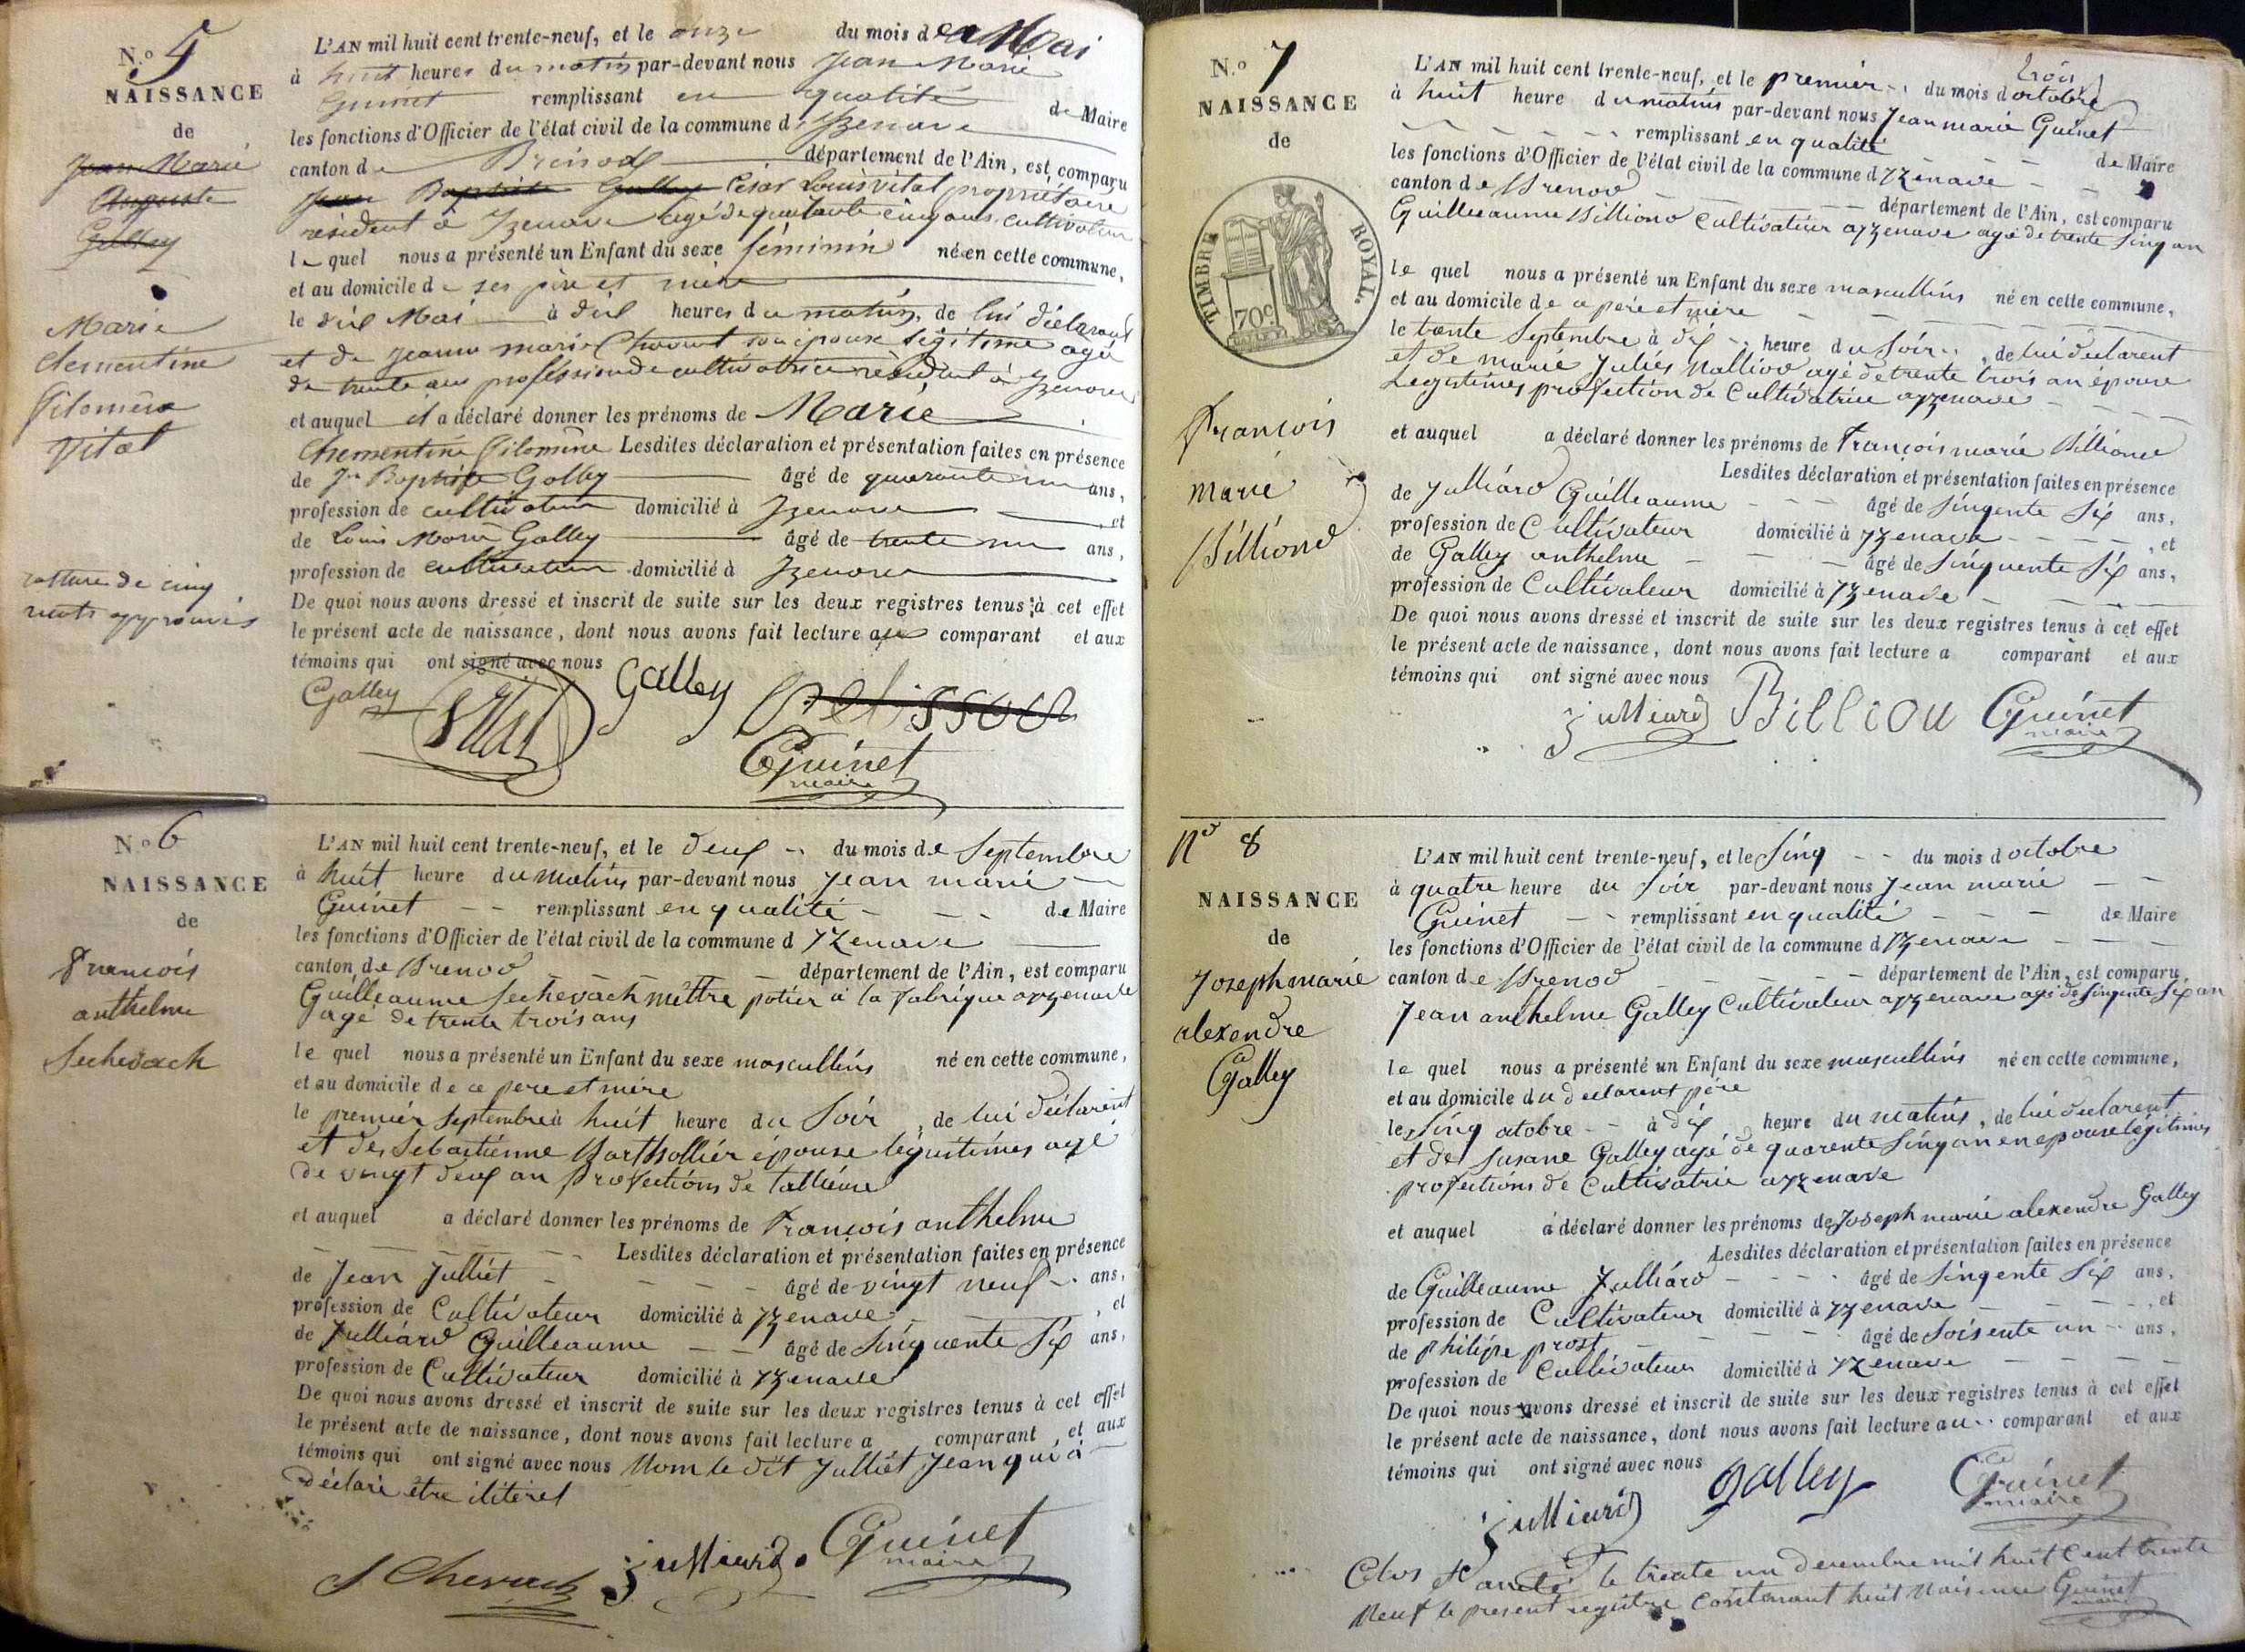 N.° 5
NAISSANCE
de
Jean Marie
Auguste
Galley
Marie
Clementine
Filomène
Vital
rature de cinq
mots approuvés
L'AN mil huit cent trente-neuf, et le onze du mois de Mai
à huit heures du matin par-devant nous Jean Marie
Guinet remplissant en qualité de Maire
les fonctions d'Officier de l'état civil de la commune d'Izenave
canton de Brénod département de l'Ain, est comparu
Jean Baptiste Galley César Louis Vital propriétaire
résident à Izenave agé de quarante cinq ans cultivateur
le quel nous a présenté un Enfant du sexe féminin né en cette commune,
et au domicile de ses père et mère
le dix Mai à dix heures du matin, de lui déclarant
et de Jeanne Marie son épouse légitime agé
de trente ans profession de cultivatrice résident à Izenave
et auquel il a déclaré donner les prénoms de Marie
Clementine Filomène Lesdites déclaration et présentation faites en présence
de Jn Baptiste Galley âgé de quarante un ans,
profession de cultivateur domicilié à Izenave , et
de Louis Marie Galley âgé de trente un ans,
profession de cultivateur domicilié à Izenave
De quoi nous avons dressé et inscrit de suite sur les deux registres tenus à cet effet
le présent acte de naissance, dont nous avons fait lecture au comparant et aux
témoins qui ont signé avec nous
Galley Vital Galley Pelisson
Guinet
maire
N.° 6
NAISSANCE
de
François
anthelme
Sechevach
L'AN mil huit cent trente-neuf, et le deux du mois de Septembre
à huit heure du matins par-devant nous Jean marie
Guinet remplissant en qualité de Maire
les fonctions d'Officier de l'état civil de la commune d yzenave
canton de Brenod département de l'Ain, est comparu
Guilleaume Sechevach mettre potier a la fabrique ayzenave
agé de trente trois ans
le quel nous a présenté un Enfant du sexe mascullins né en cette commune,
et au domicile de ce pere et mére
le premiér Septembre à huit heure du Soir , de lui déclarent
et de Sebastiénne Barthollier épouse légistimes agé
de vingt deux an profections de tallieure
et auquel a déclaré donner les prénoms de François anthelme
Lesdites déclaration et présentation faites en présence
de Jean Julliét âgé de vingt neuf ans,
profession de Cultivateur domicilié à yzenave , et
de Julliard Guilleaume âgé de Sinquente Six ans,
profession de Cultivateur domicilié à yzenave
De quoi nous avons dressé et inscrit de suite sur les deux registres tenus à cet effet
le présent acte de naissance, dont nous avons fait lecture a comparant et aux
témoins qui ont signé avec nous Nom le dit Julliét Jean qui à
déclaré être ilitéret
S Chevach julliard Guinet
maire
N.° 7
NAISSANCE
de
TIMBRE ROYAL.
70c
François
marie
Billiond
L'AN mil huit cent trente-neuf, et le premier du mois d octobre
trois
à huit heure du matins par-devant nous Jean marie Guinet
remplissant en qualité de Maire
les fonctions d'Officier de l'état civil de la commune d yzenave
canton de Brenod département de l'Ain, est comparu
Guilleaume Billiond Cultivateur ayzenave agé de trente Sinq an
le quel nous a présenté un Enfant du sexe mascullins né en cette commune,
et au domicile de ce pere et mére
le trente Septembre à dix heure du Soir , de lui declarent
et de marié Juliés Malliod agé de trente trois an épouse
Legistimes profection de Cultivatrice ayzenave
et auquel a déclaré donner les prénoms de François marie Billiond
Lesdites déclaration et présentation faites en présence
de Julliard Guilleaume âgé de Sinqente Six ans,
profession de Cultivateur domicilié à yzenave , et
de Galley anthelme âgé de Sinquente Six ans,
profession de Cultivateur domicilié à yzenave
De quoi nous avons dressé et inscrit de suite sur les deux registres tenus à cet effet
le présent acte de naissance, dont nous avons fait lecture a comparant et aux
témoins qui ont signé avec nous
julliard Billiou Guinet
maire
No 8
NAISSANCE
de
Joseph marie
alexendre
Galley
L'AN mil huit cent trente-neuf, et le Sinq du mois d octobre
à quatre heure du Soir par-devant nous Jean marie
Guinet remplissant en qualité de Maire
les fonctions d'Officier de l'état civil de la commune d yzenave
canton de Brenod département de l'Ain, est comparu
Jean anthelme Galley Cultivateur ayzenave agé de Sinqente Six an
le quel nous a présenté un Enfant du sexe mascullins né en cette commune,
et au domicile du declarent pére
le Sinq otobre à dix heure du matins, de lui declarent
et de Susane Galley agé de quarente Sinq an en epouse légitimes
profections de Cultivatrie ayzenave
et auquel a déclaré donner les prénoms de Joseph marie alexendre Galley
Lesdites déclaration et présentation faites en présence
de Guilleaume Julliard âgé de Sinqente Six ans,
profession de Cultivateur domicilié à yzenave , et
de philipe prost âgé de Soisente un ans,
profession de Cultivateur domicilié à yzenave
De quoi nous avons dressé et inscrit de suite sur les deux registres tenus à cet effet
le présent acte de naissance, dont nous avons fait lecture au comparant et aux
témoins qui ont signé avec nous
julliard galley Guinet
maire
Clos et areté le trente un decembre mil huit cent trente
Neuf le present registre contenant huit Naisence Guinet
maire